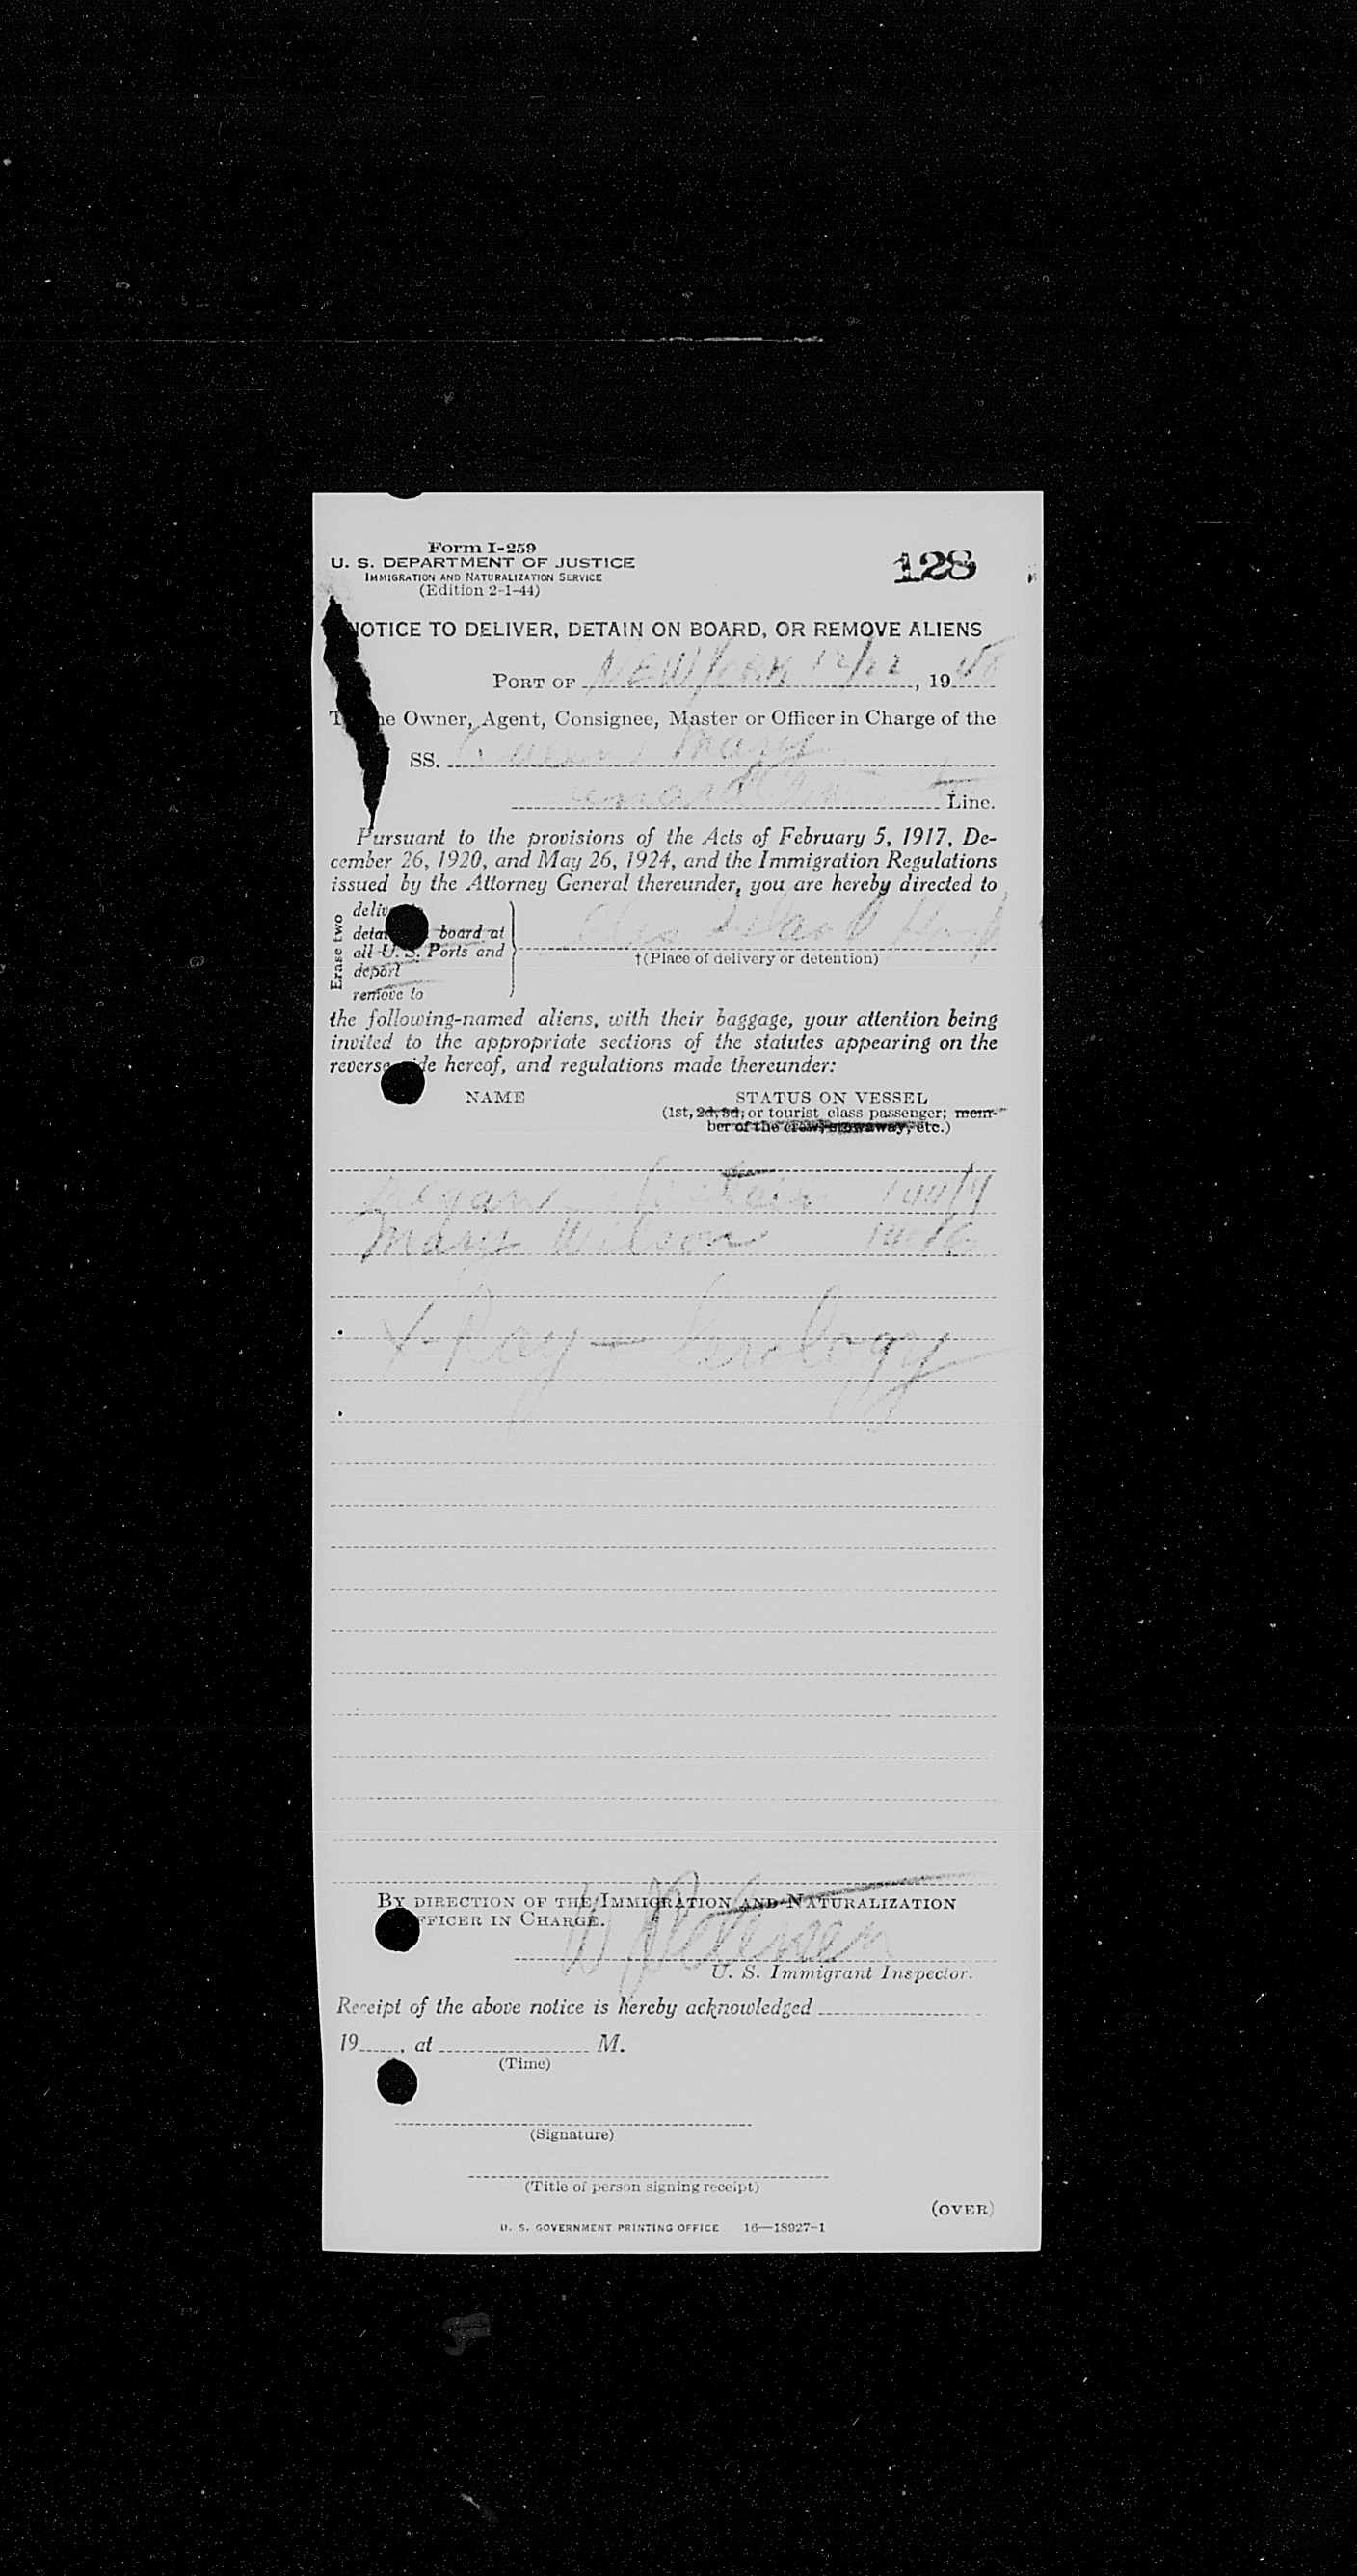 Form I-259
U. S. DEPARTMENT OF JUSTICE
IMMIGRATION AND NATURALIZATION SERVICE
(Edition 2-1-44)
128
NOTICE TO DELIVER, DETAIN ON BOARD, OR REMOVE ALIENS
PORT OF New York 12/22, 19
To the Owner, Agent, Consignee, Master or Officer in Charge of the
SS. Queen Mary
Cunard White Line.
Pursuant to the provisions of the Acts of February 5, 1917, De-
cember 26, 1920, and May 26, 1924, and the Immigration Regulations
issued by the Attorney General thereunder, you are hereby directed to
Erase two
deliver
detain board at
all U. S. Ports and
deport
remove to
Island
†(Place of delivery or detention)
the following-named aliens, with their baggage, your attention being
invited to the appropriate sections of the statutes appearing on the
reverse side hereof, and regulations made thereunder:
NAME STATUS ON VESSEL
(1st, 2d, 3d; or tourist class passenger; mem-
ber of the crew; stowaway, etc.)
Mary Wilson
X-Ray - Serology
BY DIRECTION OF THE IMMIGRATION AND NATURALIZATION
OFFICER IN CHARGE.
U. S. Immigrant Inspector.
Receipt of the above notice is hereby acknowledged
19, at M.
(Time)
(Signature)
(Title of person signing receipt)
(OVER)
U. S. GOVERNMENT PRINTING OFFICE 16—18927-1